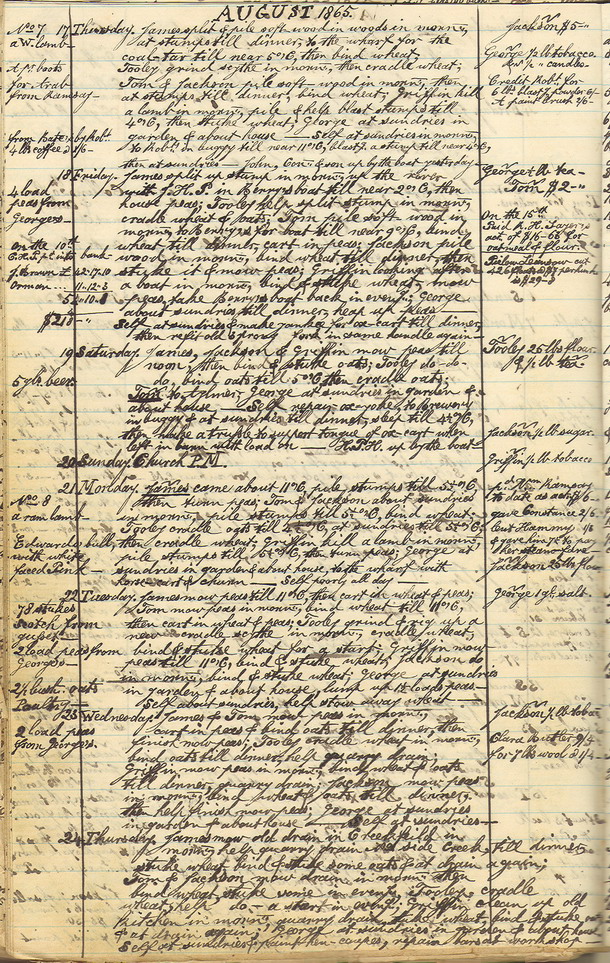 AUGUST 1865.
No 7
a W. lamb
A pr. boots
for Arab
from Ramsay
from Bate
4 lbs coffee
17 Thursday. James split & pile soft wood in woods in mornn,
at stumps till dinner, to the wharf for the
coal-tar till near 5 o'c, then bind wheat.
Tooley grind scythe in mornn, then cradle wheat;
Tom & Jackson pile soft wood in mornn, then
at stumps till dinner, bind wheat; Griffin kill
a lamb in mornn, pile & help blast stumps till
4 o'c, then stuke wheat; George at sundries in
garden & about house — Self at sundries in mornn,
in buggy till near 11 o'c, blast a stump till near 4 o'c,
then at sundries — John, Con. & son up by the boat yesterday
Jackson $5
George 1/2 lb tobacco
candles
Credit Robt for
6 lbs blast'g powder
A paint brush
4 load
peas from
Georges
On the 10th
bank
J. Brown £ 42-17-10
Orman 11-12-3
$218
18 Friday. James split up stump in mornn, up the river
with J.H.P. in Berry's boat till near 2 o'c, then
house peas; Tooley help split stump in mornn,
cradle wheat & oats; Tom pile soft wood in
mornn, to Berrys for boat till near 9 o'c, bind
wheat till dinner, cart in peas; Jackson pile
wood in mornn, bind wheat till dinner, then
stuke it & mow peas; Griffin looking after
a boat in mornn, bind & stuke wheat, mow
peas, take Berrys boat back in eveng; George
about sundries till dinner, heap up peas
Self at sundries & make for ox-cart till dinner,
then refit old 3 prong fork in same handle again
George 1 lb tea
Tom $2
On the 15th
Paid R. H. Sayers
oatmeal & flour
5 gls beer
19 Saturday. James, Jackson & Griffin mow peas till
noon, then bind & stuke oats; Tooley do - do
do, bind oats till 5 o'c, then cradle oats;
Tom to Elmer; George at sundries in garden &
about house — Self repair ox-yoke, to Brewery
in buggy & at sundries till dinner, sleep till 4 o'c,
then make a truple to support tongue of ox-cart when
left in barn with load on — H.P.H. up by the boat
Tooley 25 lbs flour
& 1/2 lb tea
Jackson 1/2 lb sugar
20 Sunday Church P.M.
Griffin 1/2 lb tobacco
No 8
a ram lamb
Edwards bull,
with white
faced Pink
21 Monday. James came about 11 o'c, pile stumps till 5 o'c,
then turn peas; Tom & Jackson about sundries
in mornn, pile stumps till 5 o'c, bind wheat;
Tooley cradle oats till 4 o'c, at sundries till 5 o'c,
then cradle wheat; Griffin kill a lamb in mornn,
pile stumps till 5 o'c, then turn peas; George at
sundries in garden & about house, to the wharf with
horse-cart & churn — Self poorly all day
pd Wm Ramsay
to date as acct
gave Constance 2/6
lent Hammy
Jackson 25 lbs flour
78 stukes
Scotch from
2 load peas from
Georges
2 1/2 bush. oats
Poultry
22 Tuesday. James mow peas till 11 o'c, then cart in wheat & peas;
Tom mow peas in mornn, bind wheat till 11 o'c,
then cart in wheat & peas; Tooley grind & rig up a
new cradle scythe in mornn, cradle wheat,
bind & stuke wheat for a start; Griffin mow
peas till 11 o'c, bind & stuke wheat; Jackson do
in mornn, bind & stuke wheat; George at sundries
in garden & about house, lump up 15 loads peas
Self about sundries, help stow away wheat
George 1 gl. salt.
2 load peas
from Georges.
23 Wednesday. James & Tom mow peas in mornn,
cart in peas & bind oats till dinner, then
finish mow peas; Tooley cradle wheat in mornn,
bind oats till dinner, help quarry drain;
Griffin mow peas in mornn, bind wheat & oats
till dinner, quarry drain; Jackson mow peas
in mornn, bind wheat & oats till dinner,
then help finish mow peas; George at sundries
in garden & about house — Self at sundries
Jackson 1/2 lb tobac
Clara Butler
for 7 lbs wool
24 Thursday. James mow old drain in Creek field in
mornn, help quarry drain old side Creek, till dinner
stuke wheat, bind & stuke some oats & at drain again;
Tom & Jackson mow drain in mornn then
bind wheat, stuke some in eveng; Tooley cradle
wheat, help for a start in eveng; Griffin clean up old
kitchen in mornn, quarry drain, bind & stuke
& at drain again; George at sundries in garden & about house
Self at sundries & paint hen-coupes, repair bars at workshop